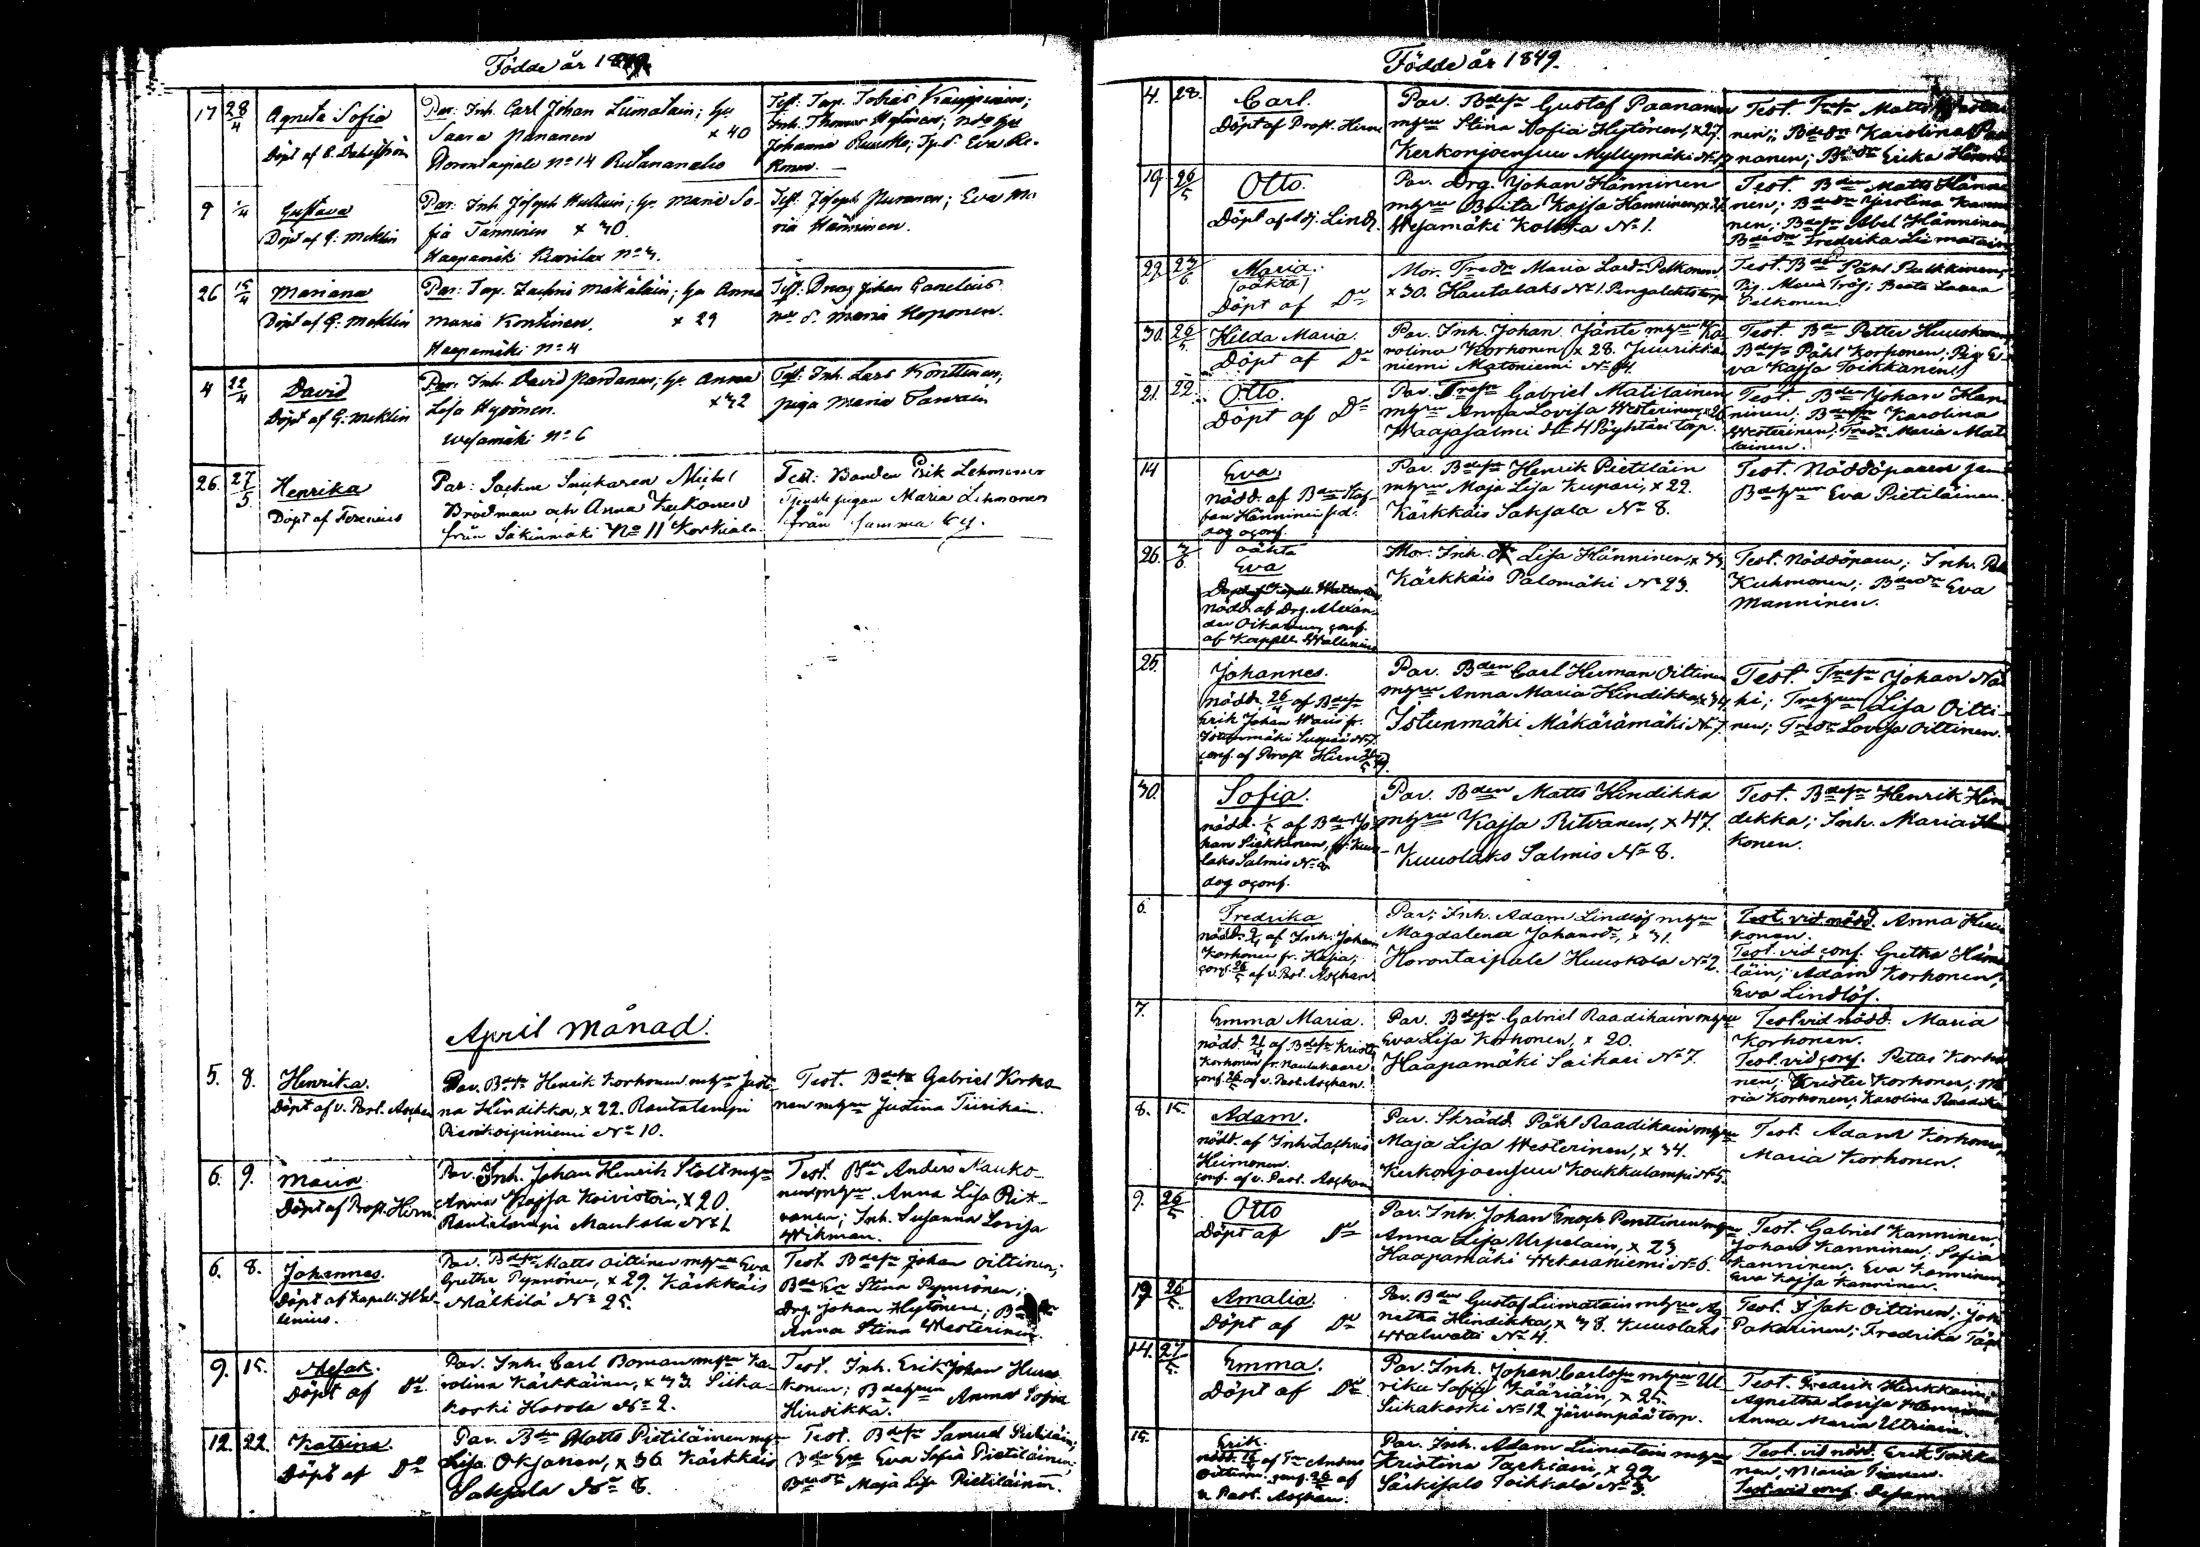 Födde år 1849.
17 28/4 Agneta Sofia
Döpt af C. Dahlström
Par: Inh. Carl Johan Liimatain; hu
Saara Pananen × 40
Horontaipale No 14 Rutananaho
Test: Torp. Tobias Kauppinen;
Inh. Thomas Hytönen; 
Johanna Ruuska; Eva Re-
konen.
9 1/4 Gustava
Döpt af G. Meklin
Par: Inh. Joseph Huttuin; hu Maria So-
fia Tanninen × 30.
Haapamäki Kuvilax No 3.
Test: Joseph Puranen; Eva Ma-
ria Hänninen.
26 15/4 Mariana
Döpt af G. Meklin
Par: Torp. Zachris Mäkäläin; hu Anna
Maria Kontinen. × 29
Haapamäki No 4
Test: Dreng Johan Canelius
Maria Koponen.
4 22/4 David
Döpt af G. Meklin
Par: Inh. David Pardanen; hu Anna
Lisa Hyvönen. × 32
Wesamäki No 6
Test: Inh. Lars Konttinen;
piga Maria Tarvain
26. 27/5 Henrika
Döpt af Forenius
Par: Sockne Snickaren Michel
Brodman och Anna Kukonen
från Säkinmäki No 11 Korkiala
Test: Bonden Erik Lehmonen
Tjenste pigan Maria Lehmonen
från samma by.
April Månad.
5. 8. Henrika.
Döpt af v. Past. Aschan
Par. Bdesn Henrik Korhonen mhru Justi-
na Hindikka, × 22. Rautalampi
Pienikoipiniemi No 10.
Test. Bdesn Gabriel Korho-
nen mhru Justina Tiirikain.
6. 9. Maria.
Döpt af Prost. Hirn
Par. Inh. Johan Henrik Stolt mhru
Anna Kajsa Koivistoin, × 20.
Rautalampi Mankola No 1
Test. Bden Anders Kauko-
nen mhru Anna Lisa Rit-
vanen; Inh. Susanna Lovisa
Wihman.
6. 8. Johannes.
Döpt af Kapell. Wal-
lenius.
Par. Bdesn Matts Oittinen mhru Eva
Gretha Pynnönen, × 29. Kärkkäis
Mälkilä No 25.
Test Bdesn Johan Oittinen;
Stina Pynnönen;
Drg. Johan Hytönen;
Anna Stina Westerinen.
9. 15. Aksak.
Döpt af Do
Par. Inh. Carl Boman mhru Ka-
rolina Kärkkäinen, × 33. Siika-
koski Horola No 2.
Test. Inh. Erik Johan Huus-
konen; Bdehrun Anna Sofia
Hindikka.
12. 22. Katrina.
Döpt af Do
Par. Bden Matts Pietiläinen mhru
Lisa Oksanen, × 36. Kärkkäis
Sahjala No 8.
Test. Bdesn Samuel Pietiläin;
Eva Sofia Pietiläinen;
Maja Lisa Pietiläinen.
Födde år 1849.
4. 28. Carl.
Döpt af Prost. Hirn
Par. Bdesn Gustaf Paananen
mhru Stina Sofia Hytönen, × 27.
Kerkonjoensuu Myllymäki No 12
Test. Tresn Matts
nen; Bdedn Karolina Paa-
nanen; Bdedn Erika
19. 26/5 Otto.
Döpt af Adj. Lindh.
Par. Drg. Johan Hänninen
mhru Brita Kajsa Hänninen, × 27.
Wesamäki Kolikka No 1.
Test. Bden Matts Hänni-
nen; Karolina Hänni-
nen; Bdesn Abel Hänninen;
Bdedn Fredrika Liimatain
22. 27/6 Maria.
(oäkta)
Döpt af Do
Mor. Tredr Maria Larsdr Pelkonen,
× 30. Hautalaks No 1. Pengalahti torp.
Test. Bden Påhl Pulkkinen;
Pig. Maria Tröj; Beata Laura
Pelkonen.
30. 26/5 Hilda Maria.
Döpt af Do
Par. Inh. Johan Jänte mhru Ka-
rolina Korhonen, × 28. Juurikka-
niemi Matoniemi No 14.
Test. Bden Petter Huuskonen;
Bdesn Påhl Korhonen; Pig. E-
va Kajsa Toikkanen.
21. 22. Otto.
Döpt af Do
Par. Tresn Gabriel Matilainen
mhru Anna Lovisa Westerinen, × 26
Waajasalmi No 4 Pöyhtäri torp.
Test. Bden Johan Hän-
ninen; Karolina
Westerinen; Tredr Maria Mati-
lainen.
14 Eva.
nödd. af Bden Staf-
fan Hänninen f. d.
dog oconf.
Par. Bdesn Henrik Pietiläin
mhru Maja Lisa Kupari, × 22.
Kärkkäis Sahjala No 8.
Test. Nöddöparen jemte
Bdehrun Eva Pietiläinen.
26. 3/6 oäkta
Eva
nödd. af Drg. Alexan-
der Oikarinen, conf.
af Kapell. Wallenius
Mor. Inh. dr Lisa Hänninen, × 33.
Kärkkäis Palomäki No 23.
Test. Nöddöparen; Inh. Pet.
Kuhmonen; Bdedn Eva
Manninen.
25. Johannes.
nödd. 26/4 af Bdesn
Erik Johan Waris fr.
Istunmäki Suopää No 7.
conf. af Prost Hirn 20/5 49.
Par. Bden Carl Herman Oittinen
mhru Anna Maria Hindikka, × 34
Istunmäki Mäkärämäki No 7.
Test. Tresn Johan No-
ki; Trehrun Lisa Oitti-
nen; Tredr Lovisa Oittinen.
30. Sofia.
nödd. 1/5 af Bden Jo-
han Piekkinen, fr. Kuus-
laks Salmis No 8
dog oconf.
Par. Bden Matts Hindikka
mhru Kajsa Ritvanen, × 47.
Kuuslaks Salmis No 8.
Test. Bdesn Henrik Hin-
dikka; Inh. Maria
konen.
6. Fredrika
nödd. 9/4 af Inh. Johan
Korhonen fr. Kapia,
conf. 26/5 af v. Past. Aschan
Par. Inh. Adam Lindlöf mhru
Magdalena Johansdr, × 31.
Horontaipale Huuskola No 2.
Test. vid nödd. Anna Huus-
konen.
Test. vid conf. Gretha Hämä-
läin; Adam Korhonen;
Eva Lindlöf.
7. Emma Maria.
nödd. 21/4 af Bdesn Krister
Korhonen fr. Rautakaare
conf. 26/5 af v. Past. Aschan.
Par. Bdesn Gabriel Raadikain mhru
Eva Lisa Korhonen, × 20.
Haapamäki Saikari No 7.
Test vid nödd. Maria
Korhonen.
Test. vid conf. Petas Korho-
nen; Krister Korhonen; Ma-
ria Korhonen; Karolina Raadika
8. 15. Adam.
nödd. af Inh. Zachris
Heimonen.
conf. af v. Past. Aschan
Par. Skrädd. Påhl Raadikain mhru
Maja Lisa Westerinen, × 34.
Kerkonjoensuu Koukkulampi No 5.
Test. Adam Korhonen,
Maria Korhonen.
9. 26/5 Otto
Döpt af Do
Par. Inh. Johan Enoch Penttinen mhru
Anna Lisa Urpelain, × 23.
Haapamäki Wekaraniemi No 6.
Test. Gabriel Kanninen,
Johan Kanninen; Sofia
Kanninen; Eva Kanninen
Eva Kajsa Kanninen.
19. 26/5 Amalia.
Döpt af Do
Par. Bden Gustaf Liimatain mhru Ag-
netha Hindikka, × 38. Kuuslaks
Walwatti No 4.
Test. Isak Oittinen; Joh
Pakarinen; Fredrika
14. 27/5 Emma.
Döpt af Do
Par. Inh. Johan Carlsson mhru Ul-
rika Sofia Kääriäin, × 25.
Siikakoski No 12 Järvenpää torp.
Test. Fredrik Hinkkanen;
Agnetha Lovisa
Anna Maria Utriain.
15. Erik.
nödd. af Tre Anders
Oittinen, conf. 26/5 af
v. Past. Aschan.
Par. Inh. Adam Liimatain mhru
Kristina Tarkiain, × 22
Särkisalo Toikkala No 3.
Test. vid nödd. Erik Toikka-
nen, Maria
Test. vid conf.